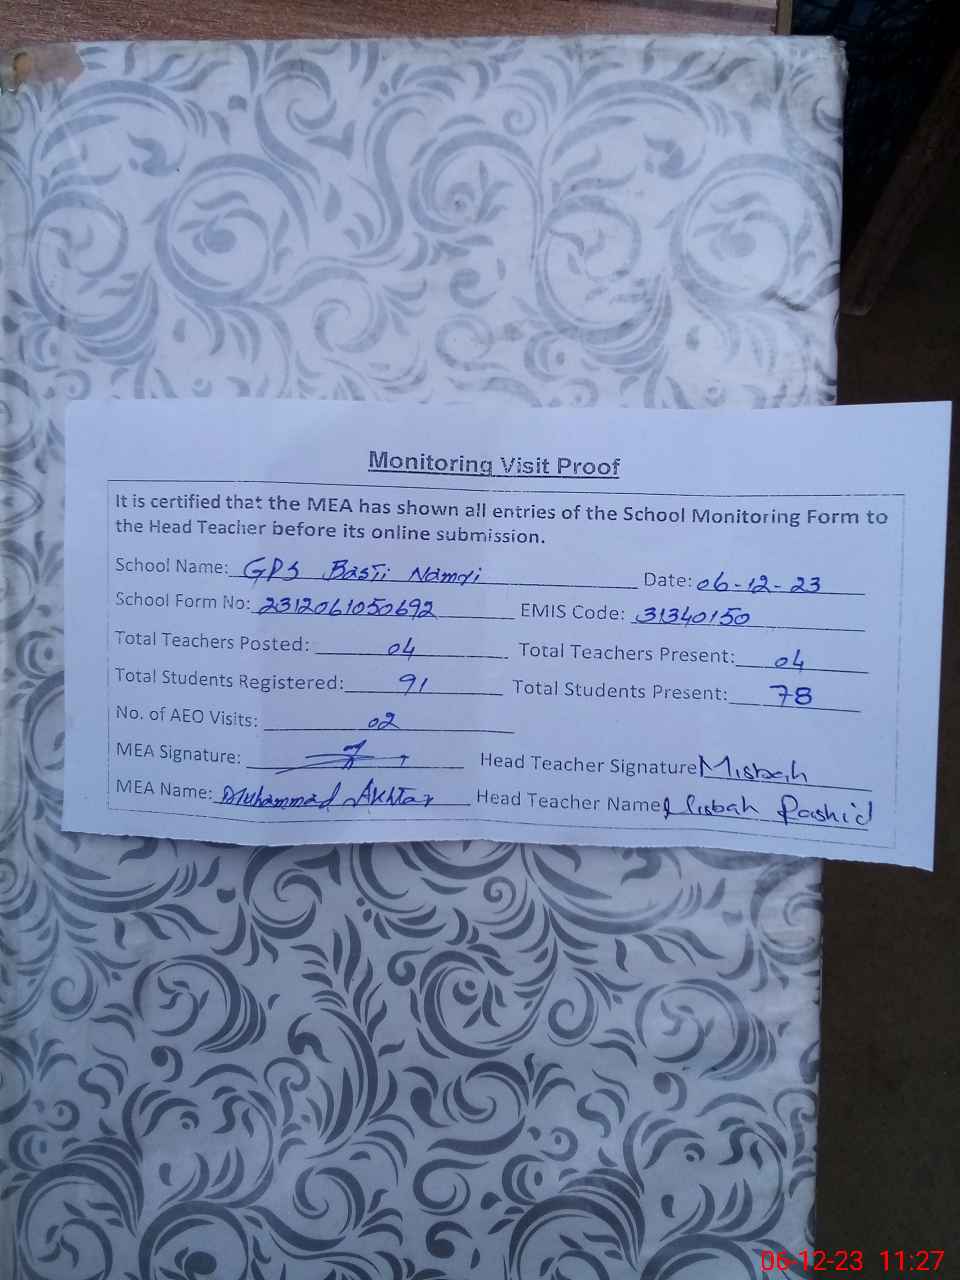 Monitoring Visit Proof
It is certified that the MEA has shown all entries of the School Monitoring Form to
the Head Teacher before its online submission.
School Name: GPS Basti Namdi Date: 06-12-23
School Form No: 2312061050692 EMIS Code: 31340150
Total Teachers Posted: 04 Total Teachers Present: 04
Total Students Registered: 91 Total Students Present: 78
No. of AEO Visits: 02
MEA Signature: Head Teacher Signature Misbah
MEA Name: Muhammad Akhtar Head Teacher Name Misbah Rashid
06-12-23 11:27